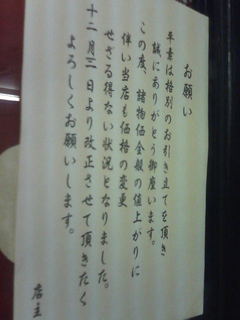 お願い
平素は格別のお引き立てを頂き
誠にありがとう御座います。
この度、諸物価全般の値上がりに
伴い当店も価格の変更
せざる得ない状況となりました。
十二月三日より改正させて頂きたく
よろしくお願いします。
店主